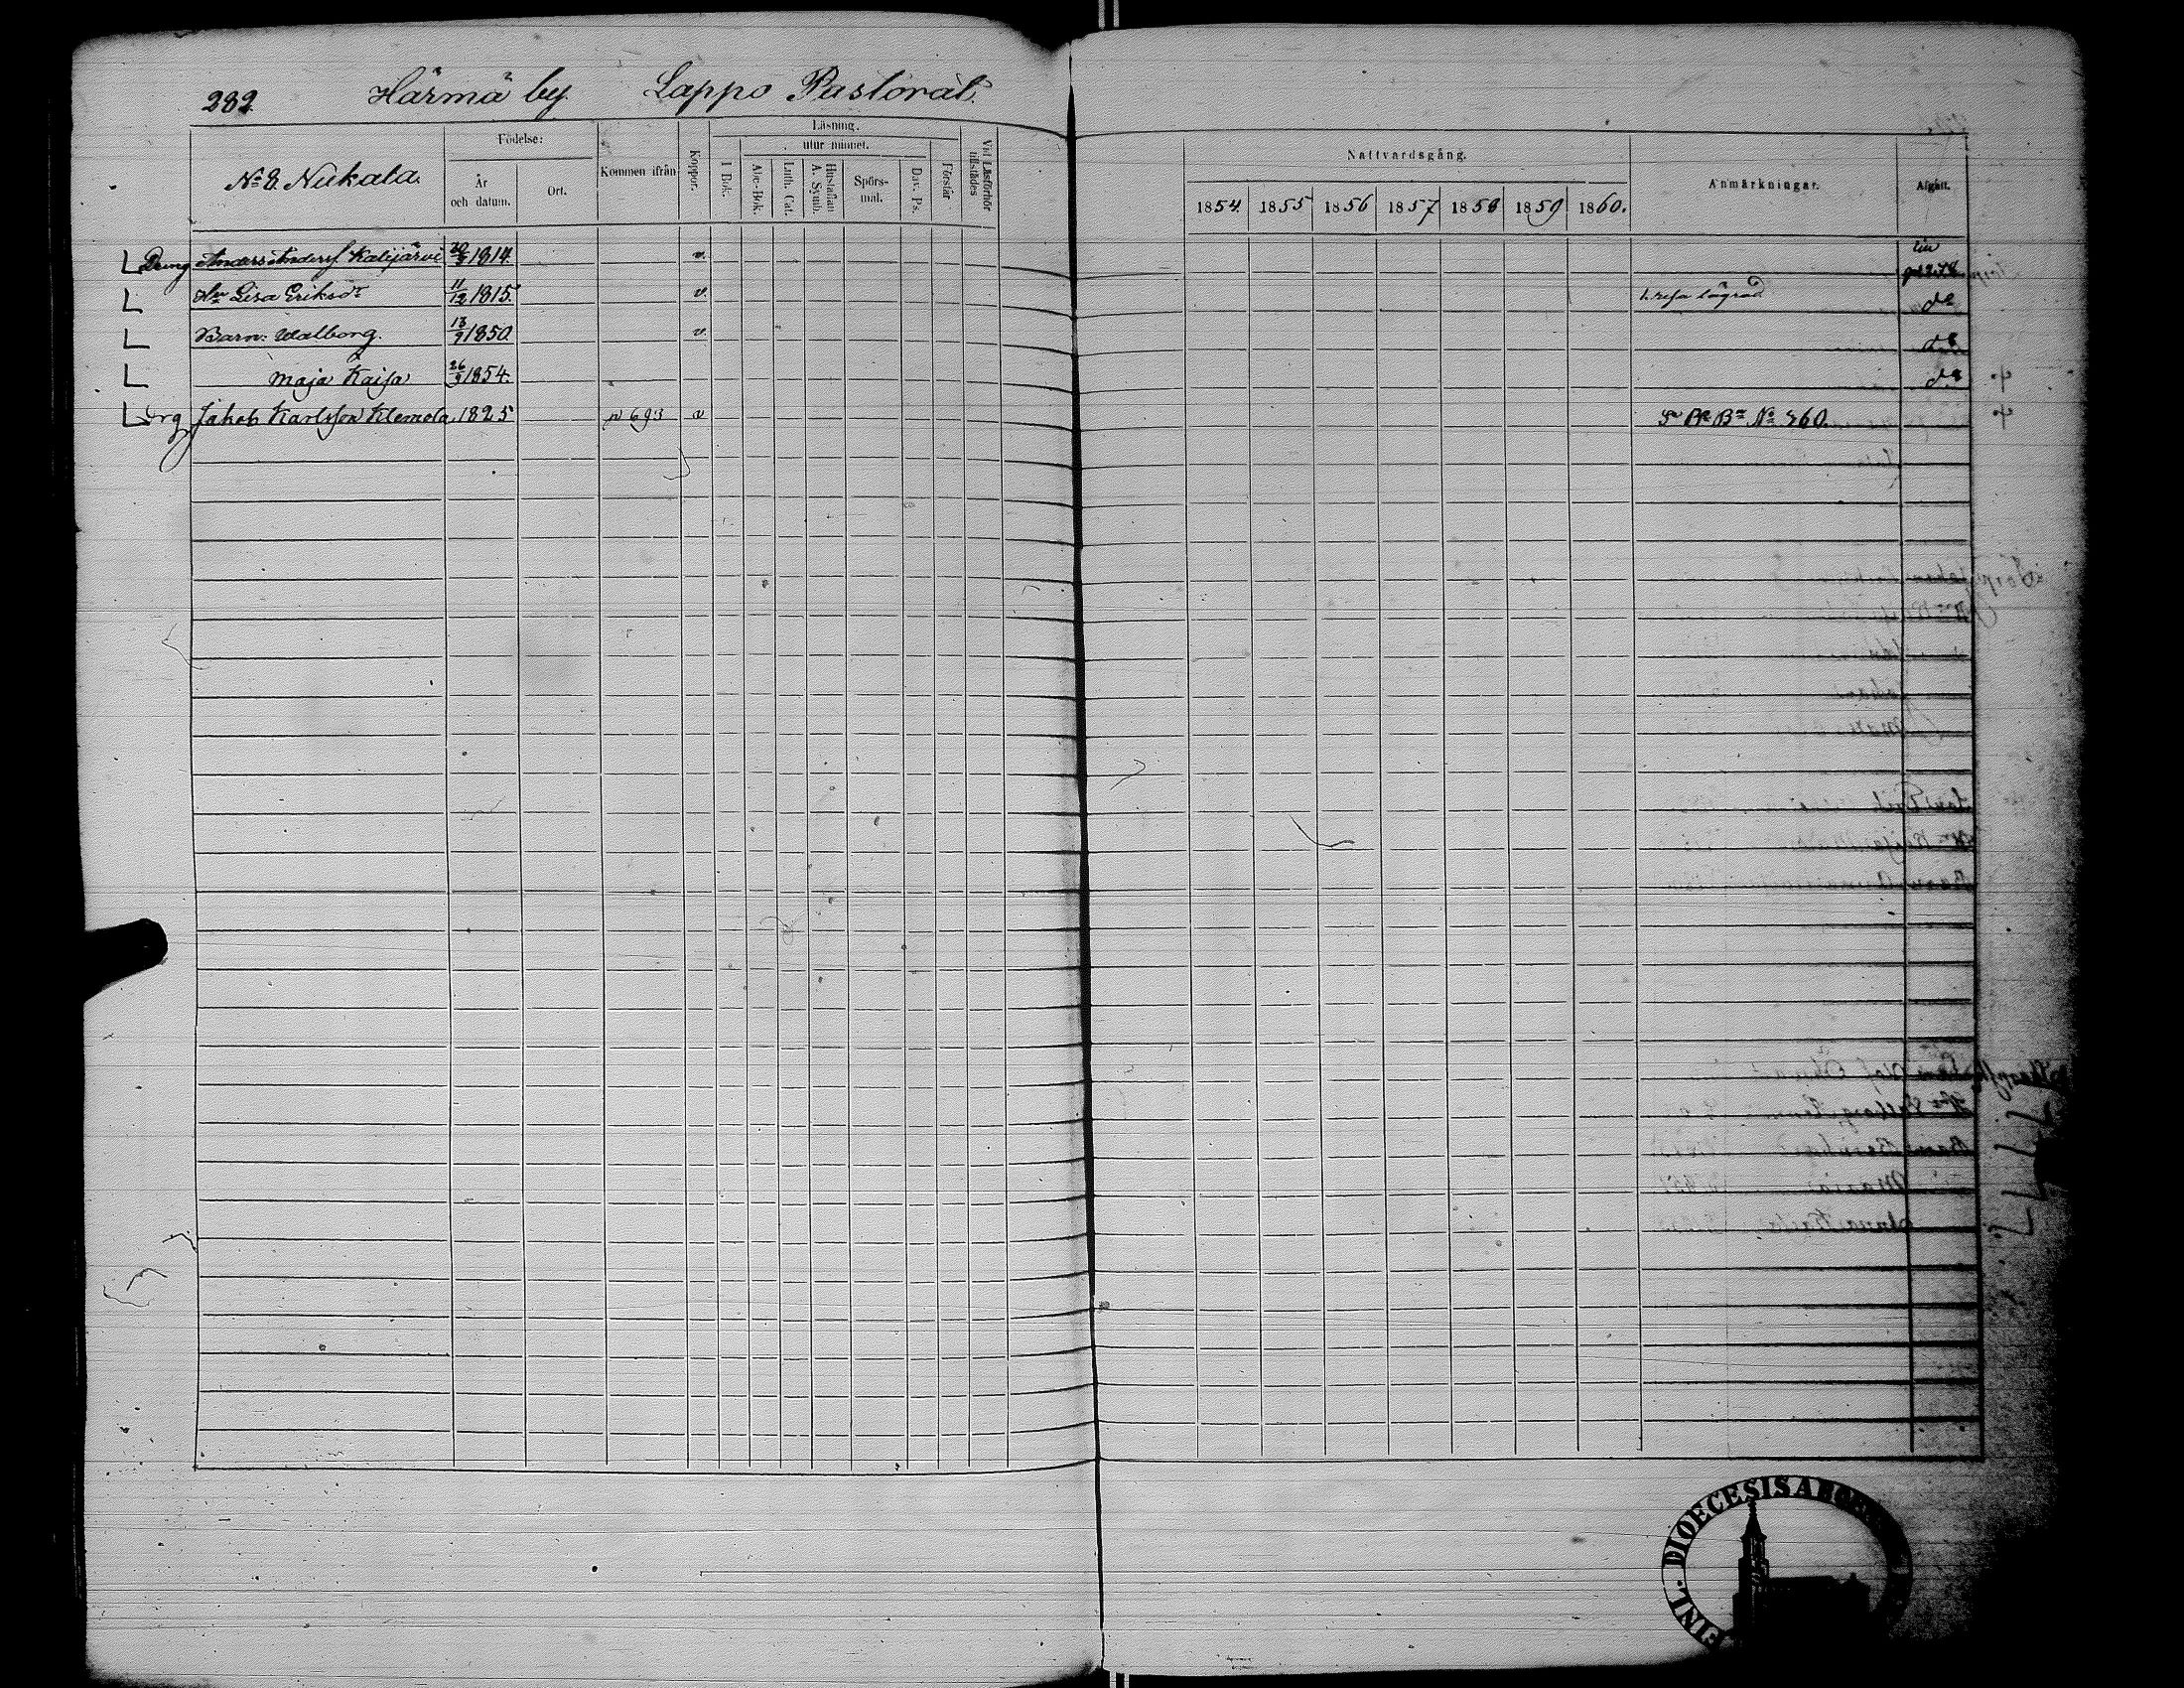 282 Härmä by. Lappo Pastorat.
No 8. Nukala.
Födelse:
År och datum.
Ort.
Kommen ifrån
Koppor.
Läsning.
utur minnet.
I Bok.
Abc-Bok.
Luth. Cat.
Hustaflan A. Symb.
Spörs-mål.
Dav. Ps.
Förstår
Vid Läsförhör tillstädes
Nattvardsgång.
1854. 1855 1856 1857 1858 1859 1860.
Anmärkningar.
Afgått.
Dräng Anders Andersf Kalijärvi 20/3 1814 v.
Hu Lisa Eriksdr 11/12 1815. v. 1. resa lägrad do
Barn: Walborg. 13/9 1850 v. do
Maja Kaisa 26/9 1854. do
drg Jakob Karlsson Klemola 1825 p 693 v No 360.
FINL. DIOECESIS ABOENSIS